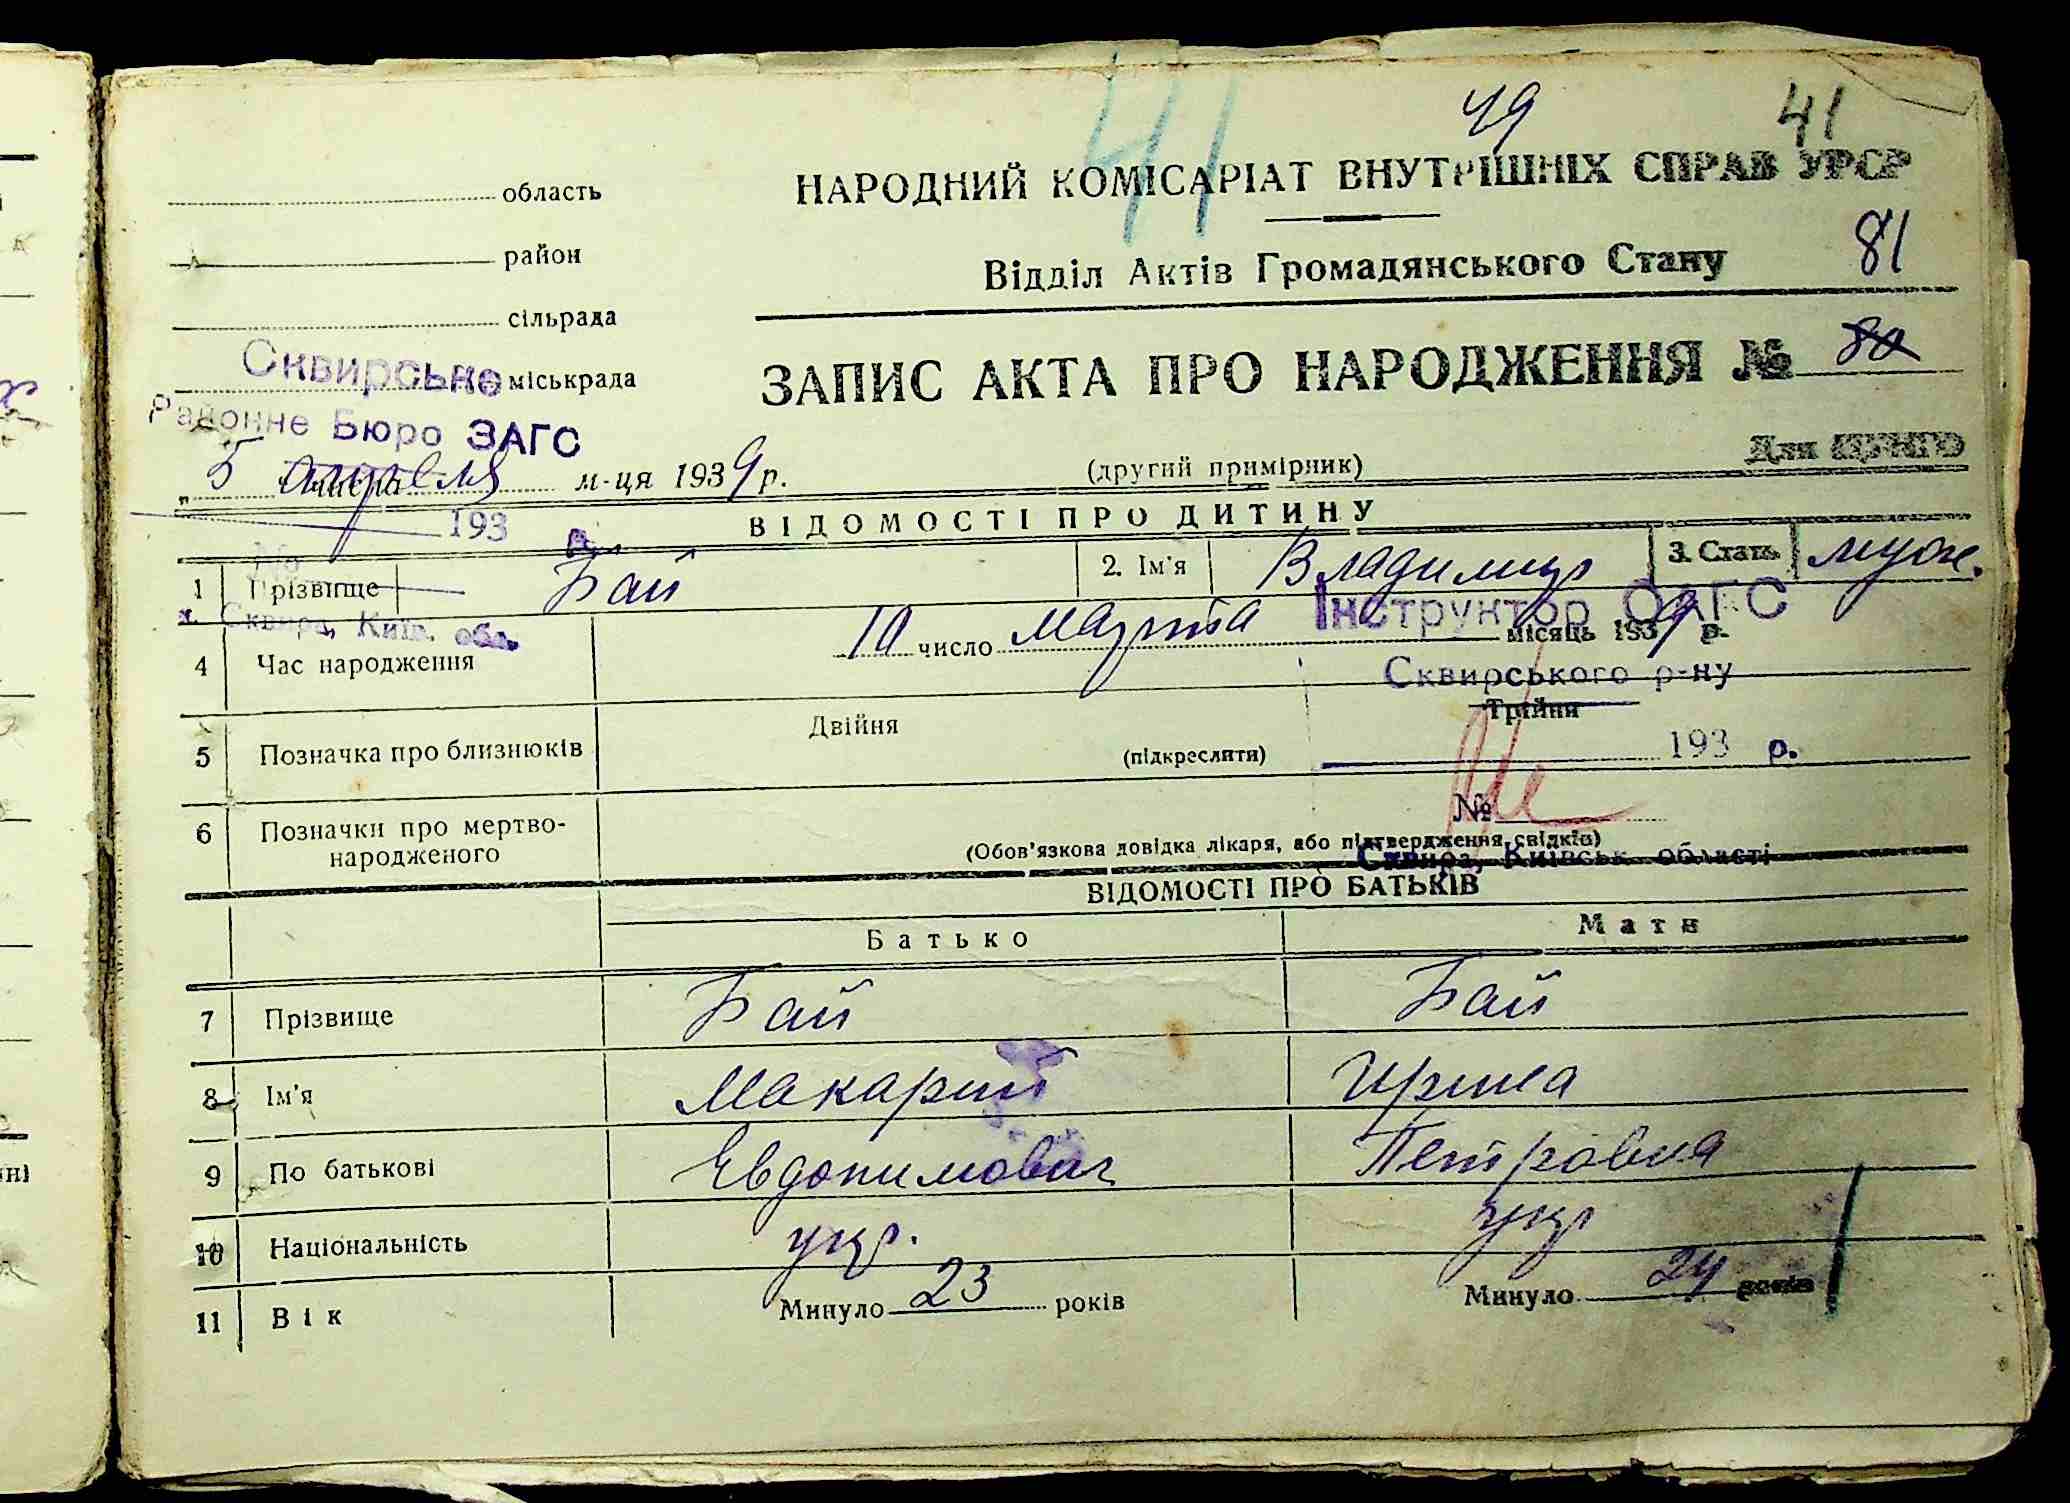 41 49 41
область НАРОДНИЙ КОМІСАРІАТ ВНУТРІШНІХ СПРАВ УРСР
район
Відділ Актів Громадянського Стану 81
сільрада
Сквирське міськрада
ЗАПИС АКТА ПРО НАРОДЖЕННЯ № 80
Районне Бюро ЗАГС
„5 апреля м-ця 1939 р. (другий примірник) Для
193 р. ВІДОМОСТІ ПРО ДИТИНУ
№
1 Прізвище Бай 2. Ім'я Владимир 3. Стать муж.
м. Сквира, Київ. обл.
Інструктор ОАГС
4 Час народження 10 число Марта місяць 1939 р.
Сквирського р-ну
5 Позначка про близнюків Двійня (підкреслити) Трійня
193 р.
№
6 Позначки про мертво-
народженого
(Обов'язкова довідка лікаря, або підтвердження свідків)
Сквира, Київськ. області
ВІДОМОСТІ ПРО БАТЬКІВ
Батько Мати
7 Прізвище Бай Бай
8 Ім'я Макарий Ирина
9 По батькові Евдокимович Петровна
10 Національність укр. укр
11 Вік Минуло 23 років Минуло 24 років
ні